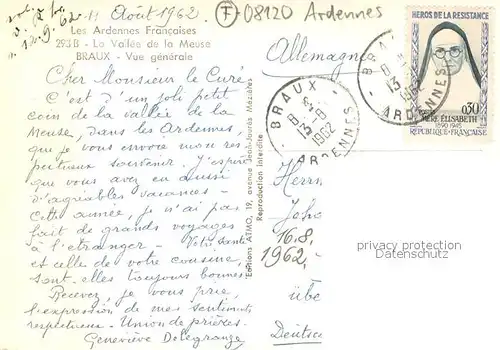 11 Août 1962
(F) 08120 Ardennes
Les Ardennes Françaises
293 B - La Vallée de la Meuse
BRAUX - Vue générale
12.9.62
Allemagne
HEROS DE LA RESISTANCE
0,30
MÈRE ÉLISABETH
1890-1945
RÉPUBLIQUE-FRANÇAISE
BRAUX
13-8
1962
ARDENNES
Cher Monsieur le Curé
C'est d'un joli petit
coin de la vallée de la
Meuse, dans les Ardennes,
que je vous envoie mon res-
pectueux souvenir. J'espère
que vous avez eu aussi
d'agréables vacances -
Cette année, je n'ai pas
fait de grands voyages
à l'étranger - Votre santé
et celle de votre cousine,
sont-elles toujours bonnes
Recevez, je vous prie,
l'expression de mes sentiments
respectueux - Union de prières.
Geneviève Delegrange
Editions ATMO, 19, avenue Jean-Jaurès Mézières
Reproduction interdite
Herrn
Joh
16.8.
1962,
übe
Deutsc
privacy protection
Datenschutz